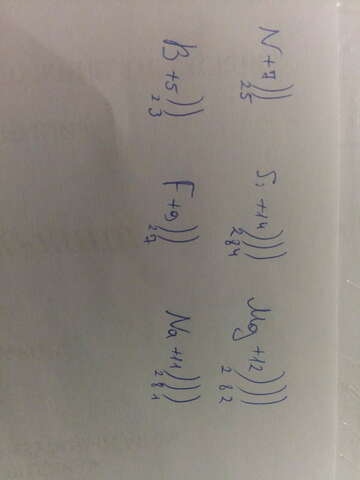 N +7 )))
2 5
Si +14 ))))
2 8 4
Mg +12 ))))
2 8 2
B +5 )))
2 3
F +9 )))
2 7
Na +11 ))))
2 8 1